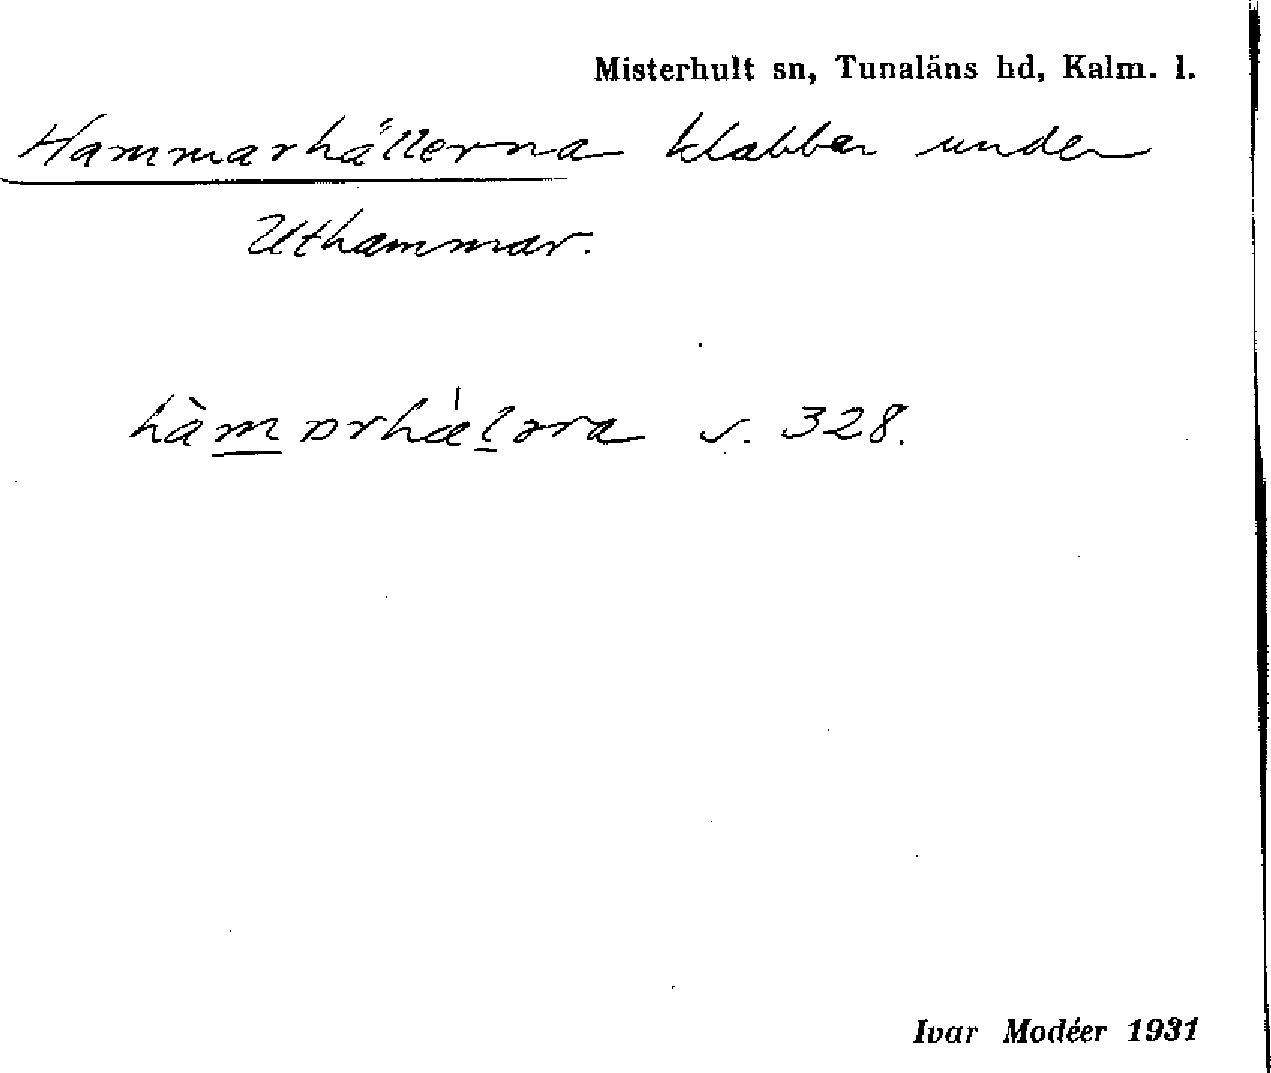 Misterhult sn, Tunaläns hd, Kalm. l.
Hammarhällerna klabbar under
Uthammar.
v. 328.
Ivar Modéer 1931